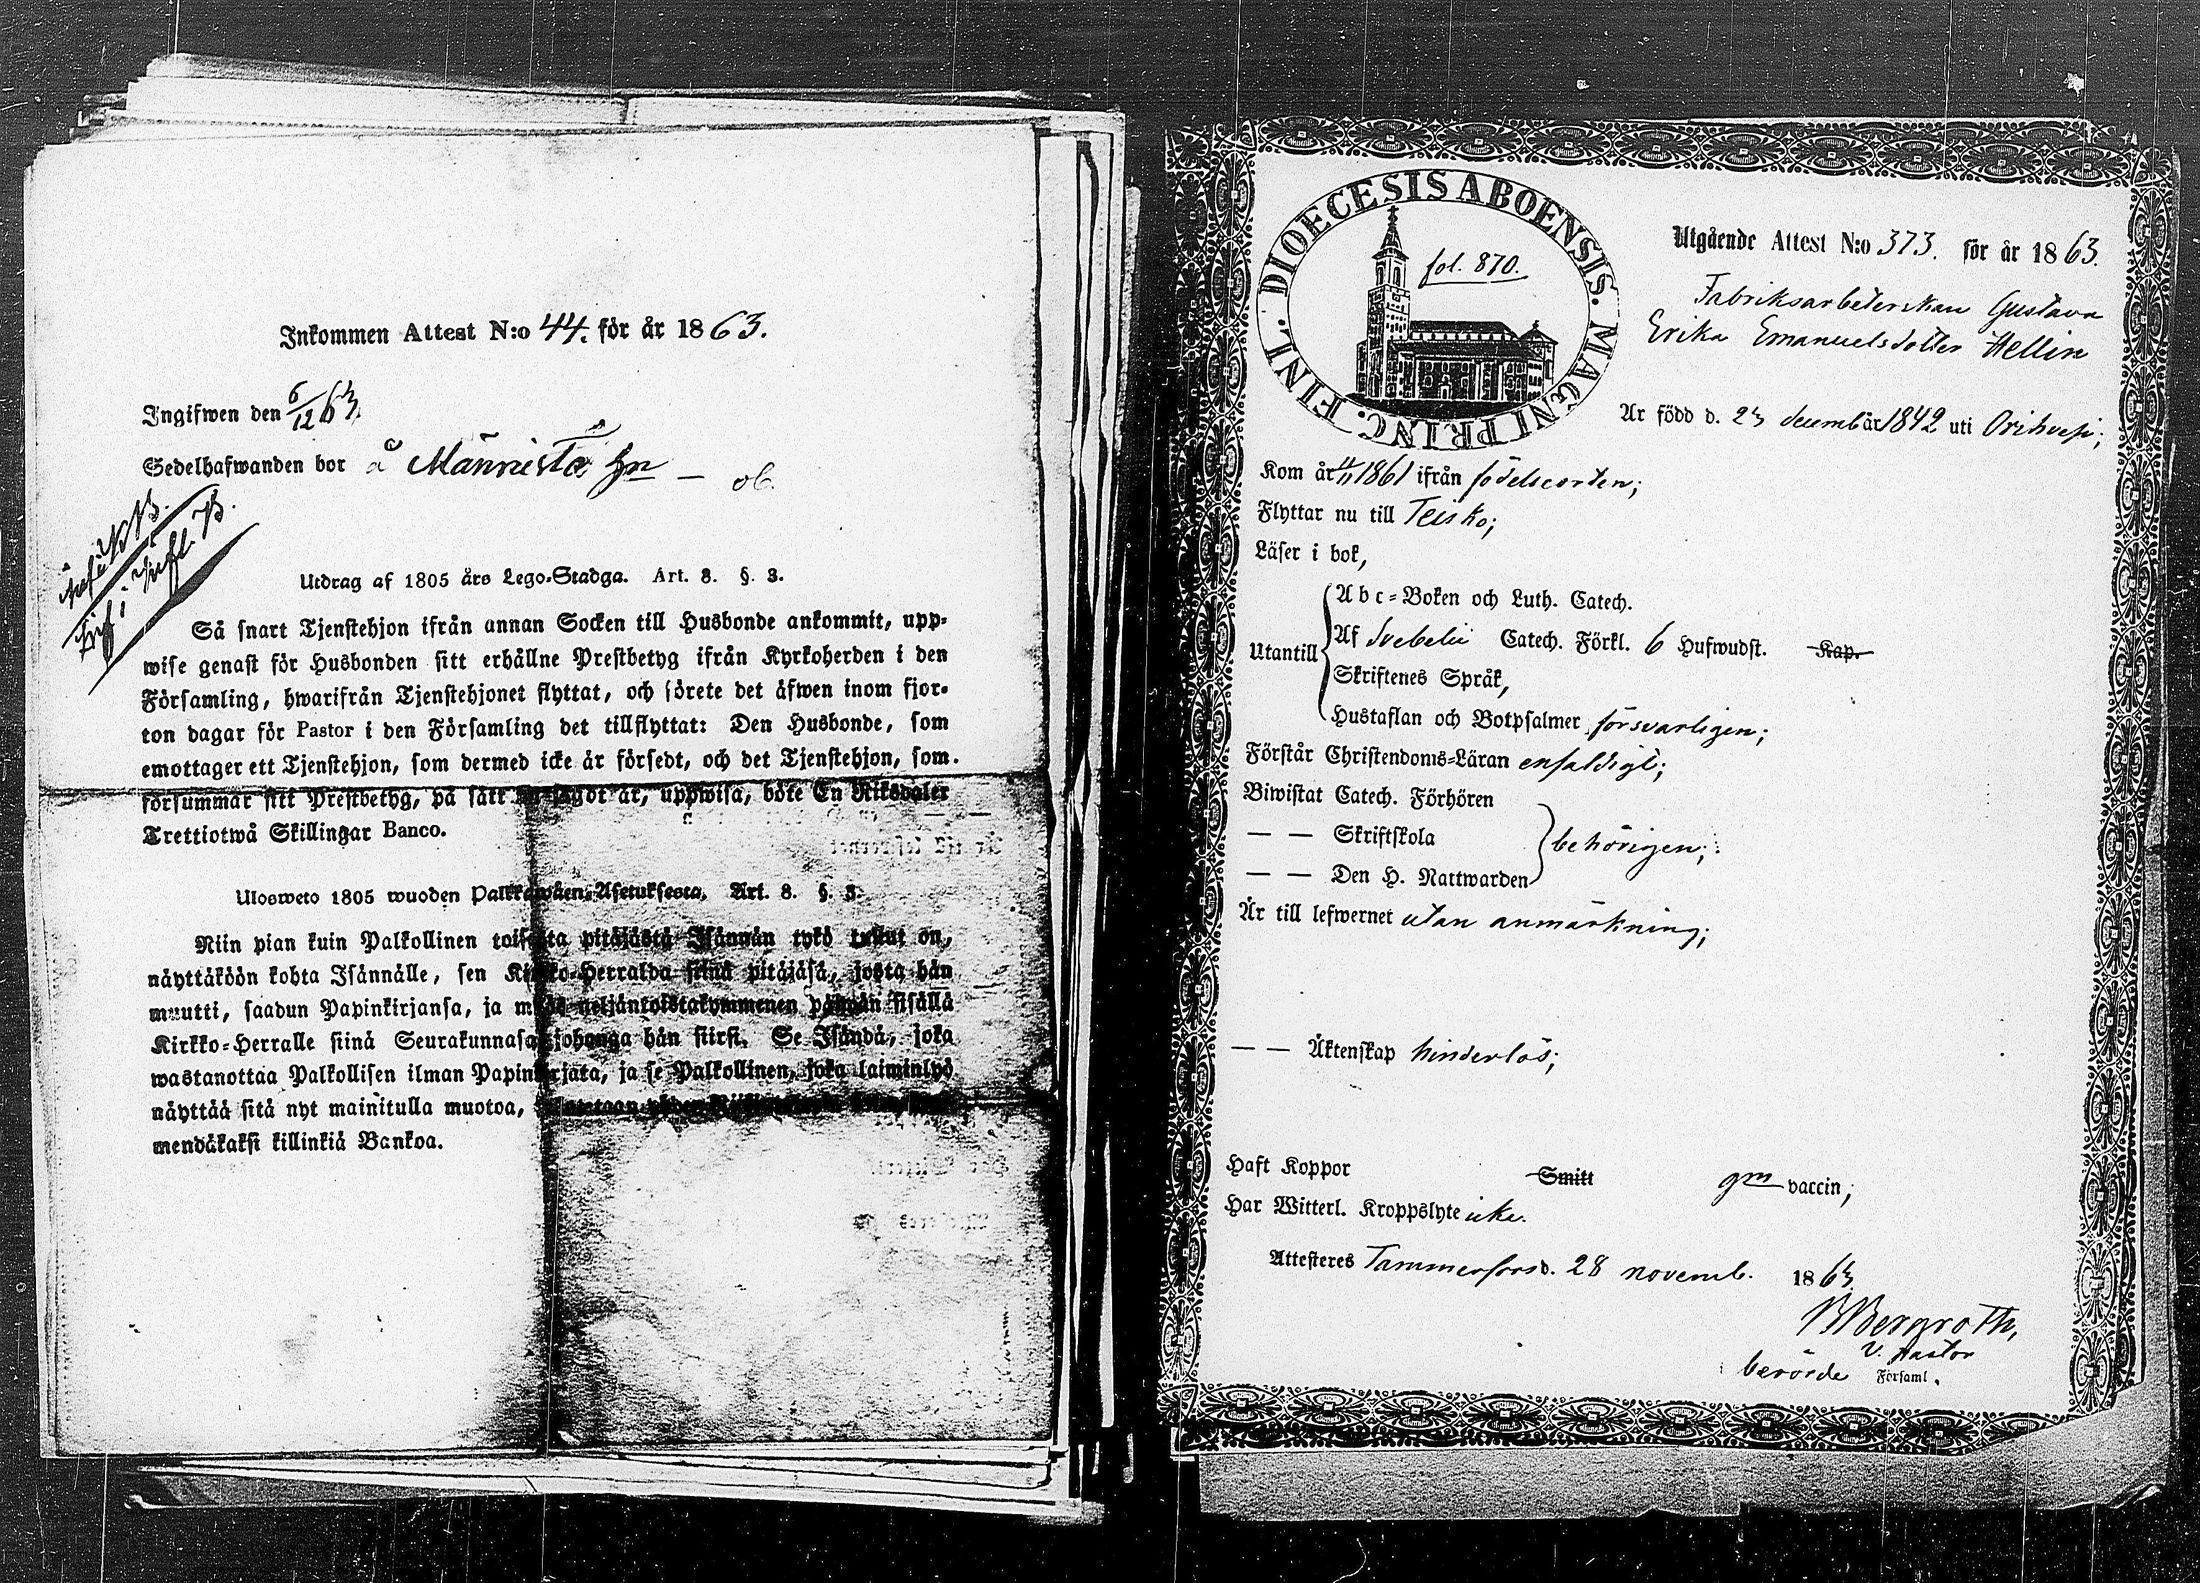 Inkommen Attest N:o 44. för år 1863.
Ingifwen den 6/12 63.
Sedelhafwanden bor å Männistö
Utdrag af 1805 års Lego-Stadga. Art. 8. §. 3.
Så snart Tjenstehjon ifrån annan Socken till Husbonde ankommit, upp-
wise genast för Husbonden sitt erhållne Prestbetyg ifrån Kyrkoherden i den
Församling, hwarifrån Tjenstehjonet flyttat, och förete det äfwen inom fjor-
ton dagar för Pastor i den Församling det tillflyttat: Den Husbonde, som
emottager ett Tjenstehjon, som dermed icke är försedt, och det Tjenstehjon, som
försummar sitt Prestbetyg, på sätt är, uppwisa, böte En Riksdaler
Trettiotwå Skillingar Banco.
Ulosweto 1805 wuoden Palkkawäen-Asetuksesta. Art. 8. §. 3.
Niin pian kuin Palkollinen toisesta pitäjästä Isännän tykö tullut on,
näyttäköön kohta Isännälle, sen Kirkko-Herralda siinä pitäjäsä, josta hän
muutti, saadun Papinkirjansa, ja myös neljäntoistakymmenen päiwän sisällä
Kirkko-Herralle siinä Seurakunnasa johonga hän siirsi. Se Isändä, joka
wastanottaa Palkollisen ilman Papinkirjata, ja se Palkollinen, joka laiminlyö
näyttää sitä nyt mainitulla muotoa,
mendäkaksi killinkiä Bankoa.
DIOECESIS ABOENSIS. MAGNI PRINC. FINL.
fol. 870.
Utgående Attest N:o 373. för år 1863.
Fabriksarbeterskan Gustava
Erika Emanuelsdotter Hellin
Är född d. 23 decemb år 1842 uti Orihvesi;
Kom år 4/11 1861 ifrån födelseorten;
Flyttar nu till Teisko;
Läser i bok,
Utantill
Abc-Boken och Luth. Catech.
Af Svebelii Catech. Förkl. 6 Hufwudst. Kap.
Skriftenes Språk,
Hustaflan och Botpsalmer försvarligen;
Förstår Christendoms-Läran enfaldigt;
Biwistat Catech. Förhören
— — Skriftskola behörigen;
— — Den H. Nattwarden
Är till lefwernet utan anmärkning;
— — Äktenskap hinderlös;
Haft Koppor Smitt gm vaccin;
Har Witterl. Kroppslyte icke.
Attesteres Tammerfors d. 28 novemb. 1863
Bergroth,
V. Pastor
berörde Forsaml.